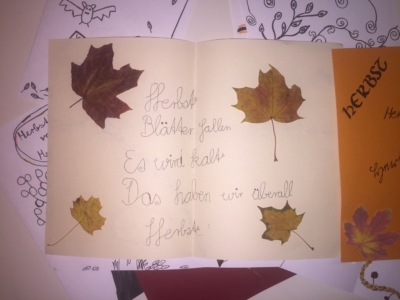 Herbst
Blätter fallen
Es wird kalt
Das haben wir überall
Herbst
HERBST
Herbst